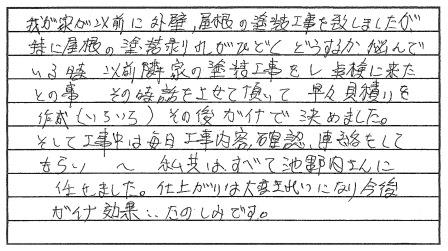 我が家が以前に外壁、屋根の塗装工事を致しましたが、
特に屋根の塗装剥がれがひどく どうするか悩んで
いる時 以前隣家の塗装工事をし 点検に来た
との事 その時話を させて頂いて 早々見積りを
作成(いろいろ) その後ガイナで決めました。
そして工事中は毎日工事内容、確認、連絡をして
もらい 〜 私共はすべて池野内さんに
任せました。仕上がりは大変きれいになり今後
ガイナ効果‥たのしみです。